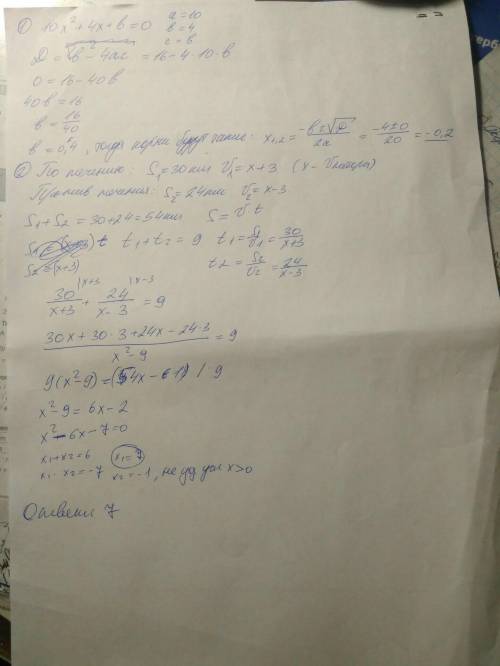 ① 10x² + 4x + в = 0  a = 10
в = 4
c = в
D = в² - 4ac = 16 - 4·10·в
0 = 16 - 40в
40в = 16
в = 16/40
в = 0,4, тогда корни будут такие: x₁,₂ = (-в ± √D)/2a = (-4 ± 0)/20 = -0,2
② По течению: S₁ = 30 км V₁ = x + 3 (x - Vкатера)
Против течения: S₂ = 24 км V₂ = x - 3
S₁ + S₂ = 30 + 24 = 54 км S = V t
t₁ + t₂ = 9 t₁ = S₁/V₁ = 30/(x+3)
t₂ = S₂/V₂ = 24/(x-3)
30/(x+3) |x+3 + 24/(x-3) |x-3 = 9
(30x + 30·3 + 24x - 24·3)/(x² - 9) = 9
x² - 9 = 6x - 2
x² - 6x - 7 = 0
x₁ + x₂ = 6 x₁ = 7
x₁·x₂ = -7 x₂ = -1, не уд усл x > 0
Ответ 7